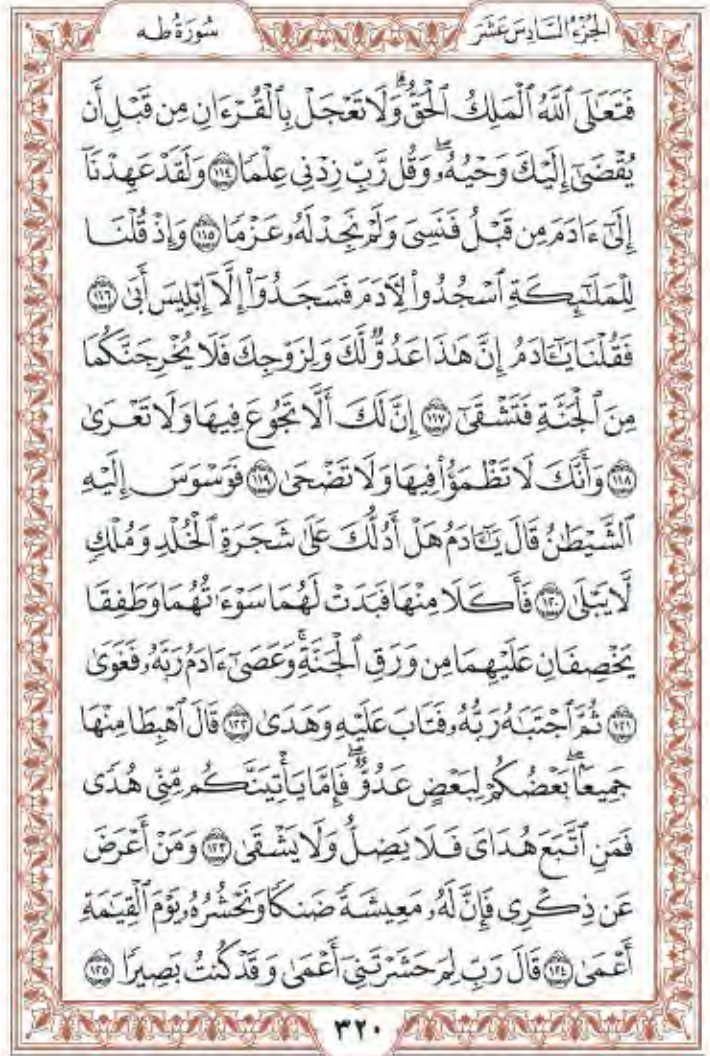 الجُزْءُ السَّادِسَ عَشَرَ
سُورَةُ طه
فَتَعَٰلَى ٱللَّهُ ٱلْمَلِكُ ٱلْحَقُّۗ وَلَا تَعْجَلْ بِٱلْقُرْءَانِ مِن قَبْلِ أَن
يُقْضَىٰٓ إِلَيْكَ وَحْيُهُۥۖ وَقُل رَّبِّ زِدْنِى عِلْمًا ١١٤ وَلَقَدْ عَهِدْنَآ
إِلَىٰٓ ءَادَمَ مِن قَبْلُ فَنَسِىَ وَلَمْ نَجِدْ لَهُۥ عَزْمًا ١١٥ وَإِذْ قُلْنَا
لِلْمَلَٰٓئِكَةِ ٱسْجُدُوا۟ لِأٓدَمَ فَسَجَدُوٓا۟ إِلَّآ إِبْلِيسَ أَبَىٰ ١١٦
فَقُلْنَا يَٰٓـَٔادَمُ إِنَّ هَٰذَا عَدُوٌّ لَّكَ وَلِزَوْجِكَ فَلَا يُخْرِجَنَّكُمَا
مِنَ ٱلْجَنَّةِ فَتَشْقَىٰٓ ١١٧ إِنَّ لَكَ أَلَّا تَجُوعَ فِيهَا وَلَا تَعْرَىٰ
١١٨ وَأَنَّكَ لَا تَظْمَؤُا۟ فِيهَا وَلَا تَضْحَىٰ ١١٩ فَوَسْوَسَ إِلَيْهِ
ٱلشَّيْطَٰنُ قَالَ يَٰٓـَٔادَمُ هَلْ أَدُلُّكَ عَلَىٰ شَجَرَةِ ٱلْخُلْدِ وَمُلْكٍ
لَّا يَبْلَىٰ ١٢٠ فَأَكَلَا مِنْهَا فَبَدَتْ لَهُمَا سَوْءَٰتُهُمَا وَطَفِقَا
يَخْصِفَانِ عَلَيْهِمَا مِن وَرَقِ ٱلْجَنَّةِۚ وَعَصَىٰٓ ءَادَمُ رَبَّهُۥ فَغَوَىٰ
١٢١ ثُمَّ ٱجْتَبَٰهُ رَبُّهُۥ فَتَابَ عَلَيْهِ وَهَدَىٰ ١٢٢ قَالَ ٱهْبِطَا مِنْهَا
جَمِيعًۢاۖ بَعْضُكُمْ لِبَعْضٍ عَدُوٌّۖ فَإِمَّا يَأْتِيَنَّكُم مِّنِّى هُدًى
فَمَنِ ٱتَّبَعَ هُدَاىَ فَلَا يَضِلُّ وَلَا يَشْقَىٰ ١٢٣ وَمَنْ أَعْرَضَ
عَن ذِكْرِى فَإِنَّ لَهُۥ مَعِيشَةً ضَنكًا وَنَحْشُرُهُۥ يَوْمَ ٱلْقِيَٰمَةِ
أَعْمَىٰ ١٢٤ قَالَ رَبِّ لِمَ حَشَرْتَنِىٓ أَعْمَىٰ وَقَدْ كُنتُ بَصِيرًا ١٢٥
٣٢٠